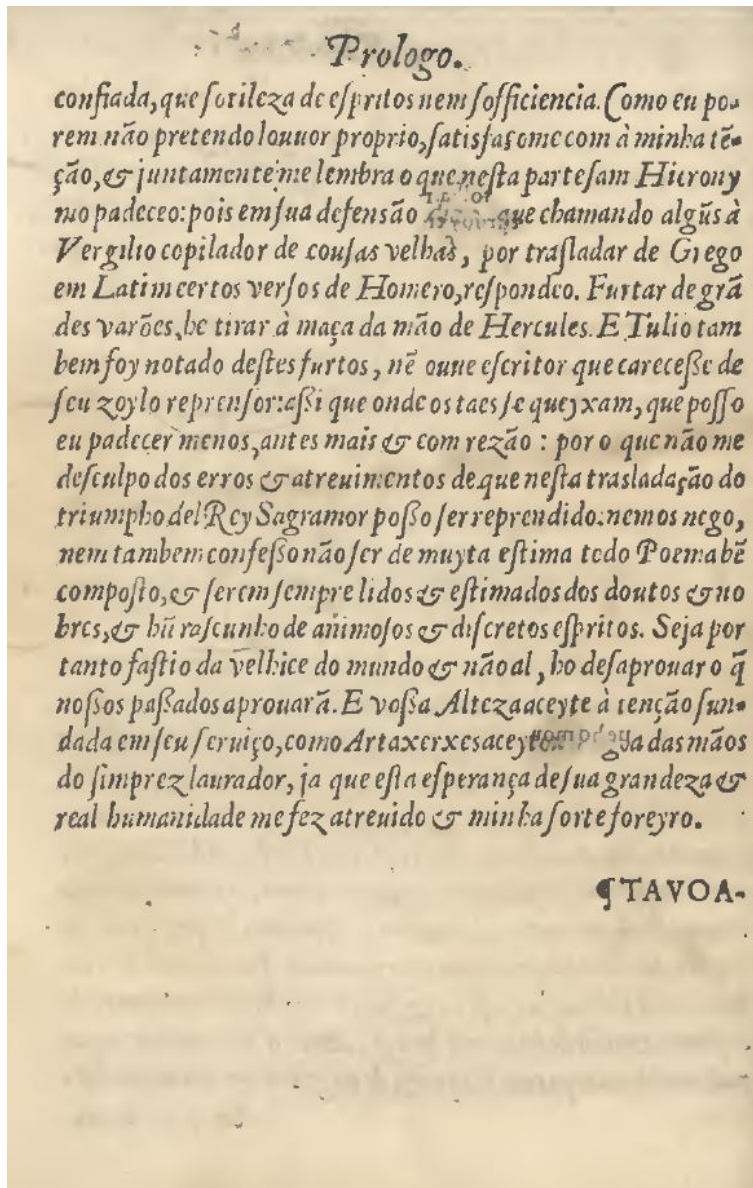 Prologo.
confiada, que ſotileza de eſpritos nem ſofficiencia. Como eu po-
rem não pretendo louuor proprio, ſatisfaçome com à minha tẽ-
ção, & juntamente me lembra o que neſta parte ſam Hierony
mo padeceo: pois em ſua defensão que chamando algũs à
Vergilio copilador de couſas velhas, por traſladar de Grego
em Latim certos verſos de Homero, reſpondeo. Furtar de grã
des varões, he tirar à maça da mão de Hercules. E Tulio tam
bem foy notado deſtes furtos, nẽ ouue eſcritor que careceſſe de
ſeu zoylo reprenſor: aſſi que onde os taes ſe queyxam, que poſſo
eu padecer menos, antes mais & com rezão : por o que não me
deſculpo dos erros & atreuimentos de que neſta trasladação do
triumpho del Rey Sagramor poſſo ſer reprendido: nem os nego,
nem tambem confeſſo não ſer de muyta eſtima todo Poema bẽ
compoſto, & ſerem ſempre lidos & eſtimados dos doutos & no
bres, & hũ raſcunho de animoſos & diſcretos eſpritos. Seja por
tanto faſtio da velhice do mundo & não al, ho deſaprouar o q̃
noſſos paſſados aprouarã. E voſſa Alteza aceyte à tenção fun-
dada em ſeu ſeruiço, como Artaxerxes aceytou das mãos
do ſimprez laurador, ja que eſta eſperança de ſua grandeza &
real humanidade me fez atreuido & minha ſorte foreyro.
¶TAVOA-